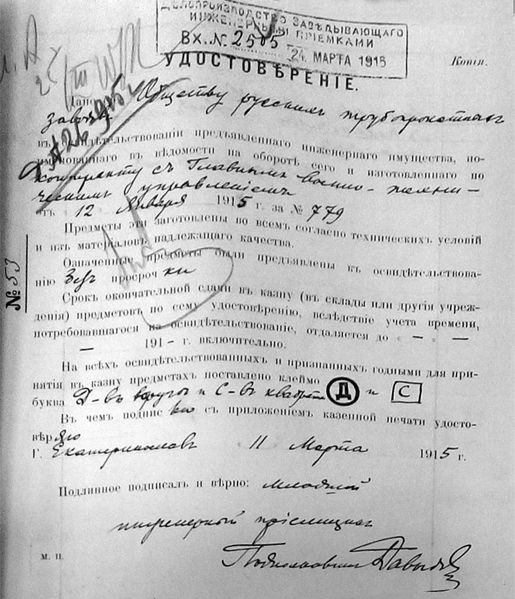 ДѢЛОПРОИЗВОДСТВО ЗАВѢДЫВАЮЩАГО
ИНЖЕНЕРНЫМИ ПРІЕМКАМИ
Вх. № 2505 24 МАРТА 1915
Копія.
УДОСТОВѢРЕНІЕ.
Дано Обществу русскихъ трубопрокатныхъ
заводовъ
въ освидѣтельствованіи предъявленнаго инженернаго имущества, по-
именованнаго въ вѣдомости на оборотѣ сего и изготовленнаго по
контракту съ Главнымъ военно-техни-
ческимъ управленіемъ
отъ 12 Января 1915 г. за № 779
Предметы эти заготовлены во всемъ согласно техническихъ условій
и изъ матеріаловъ надлежащаго качества.
Означенные предметы были предъявлены къ освидѣтельствова-
нію безъ просрочки
Срокъ окончательной сдачи въ казну (въ склады или другія учреж-
денія) предметовъ по сему удостовѣренію, вслѣдствіе учета времени,
потребовавшагося на освидѣтельствованіе, отдаляется до — — —
— 191— г. включительно.
На всѣхъ освидѣтельствованныхъ и признанныхъ годными для при-
нятія въ казну предметахъ поставлено клеймо
буква Д-въ кругу и С-въ квадратѣ Д и С
Въ чемъ подписью съ приложеніемъ казенной печати удосто-
вѣряю
Г. Екатеринославъ 11 Марта 1915 г.
Подлинное подписалъ и вѣрно: младшій
инженерный пріемщикъ
Подполковникъ Давыдовъ
М. П.
№ 53